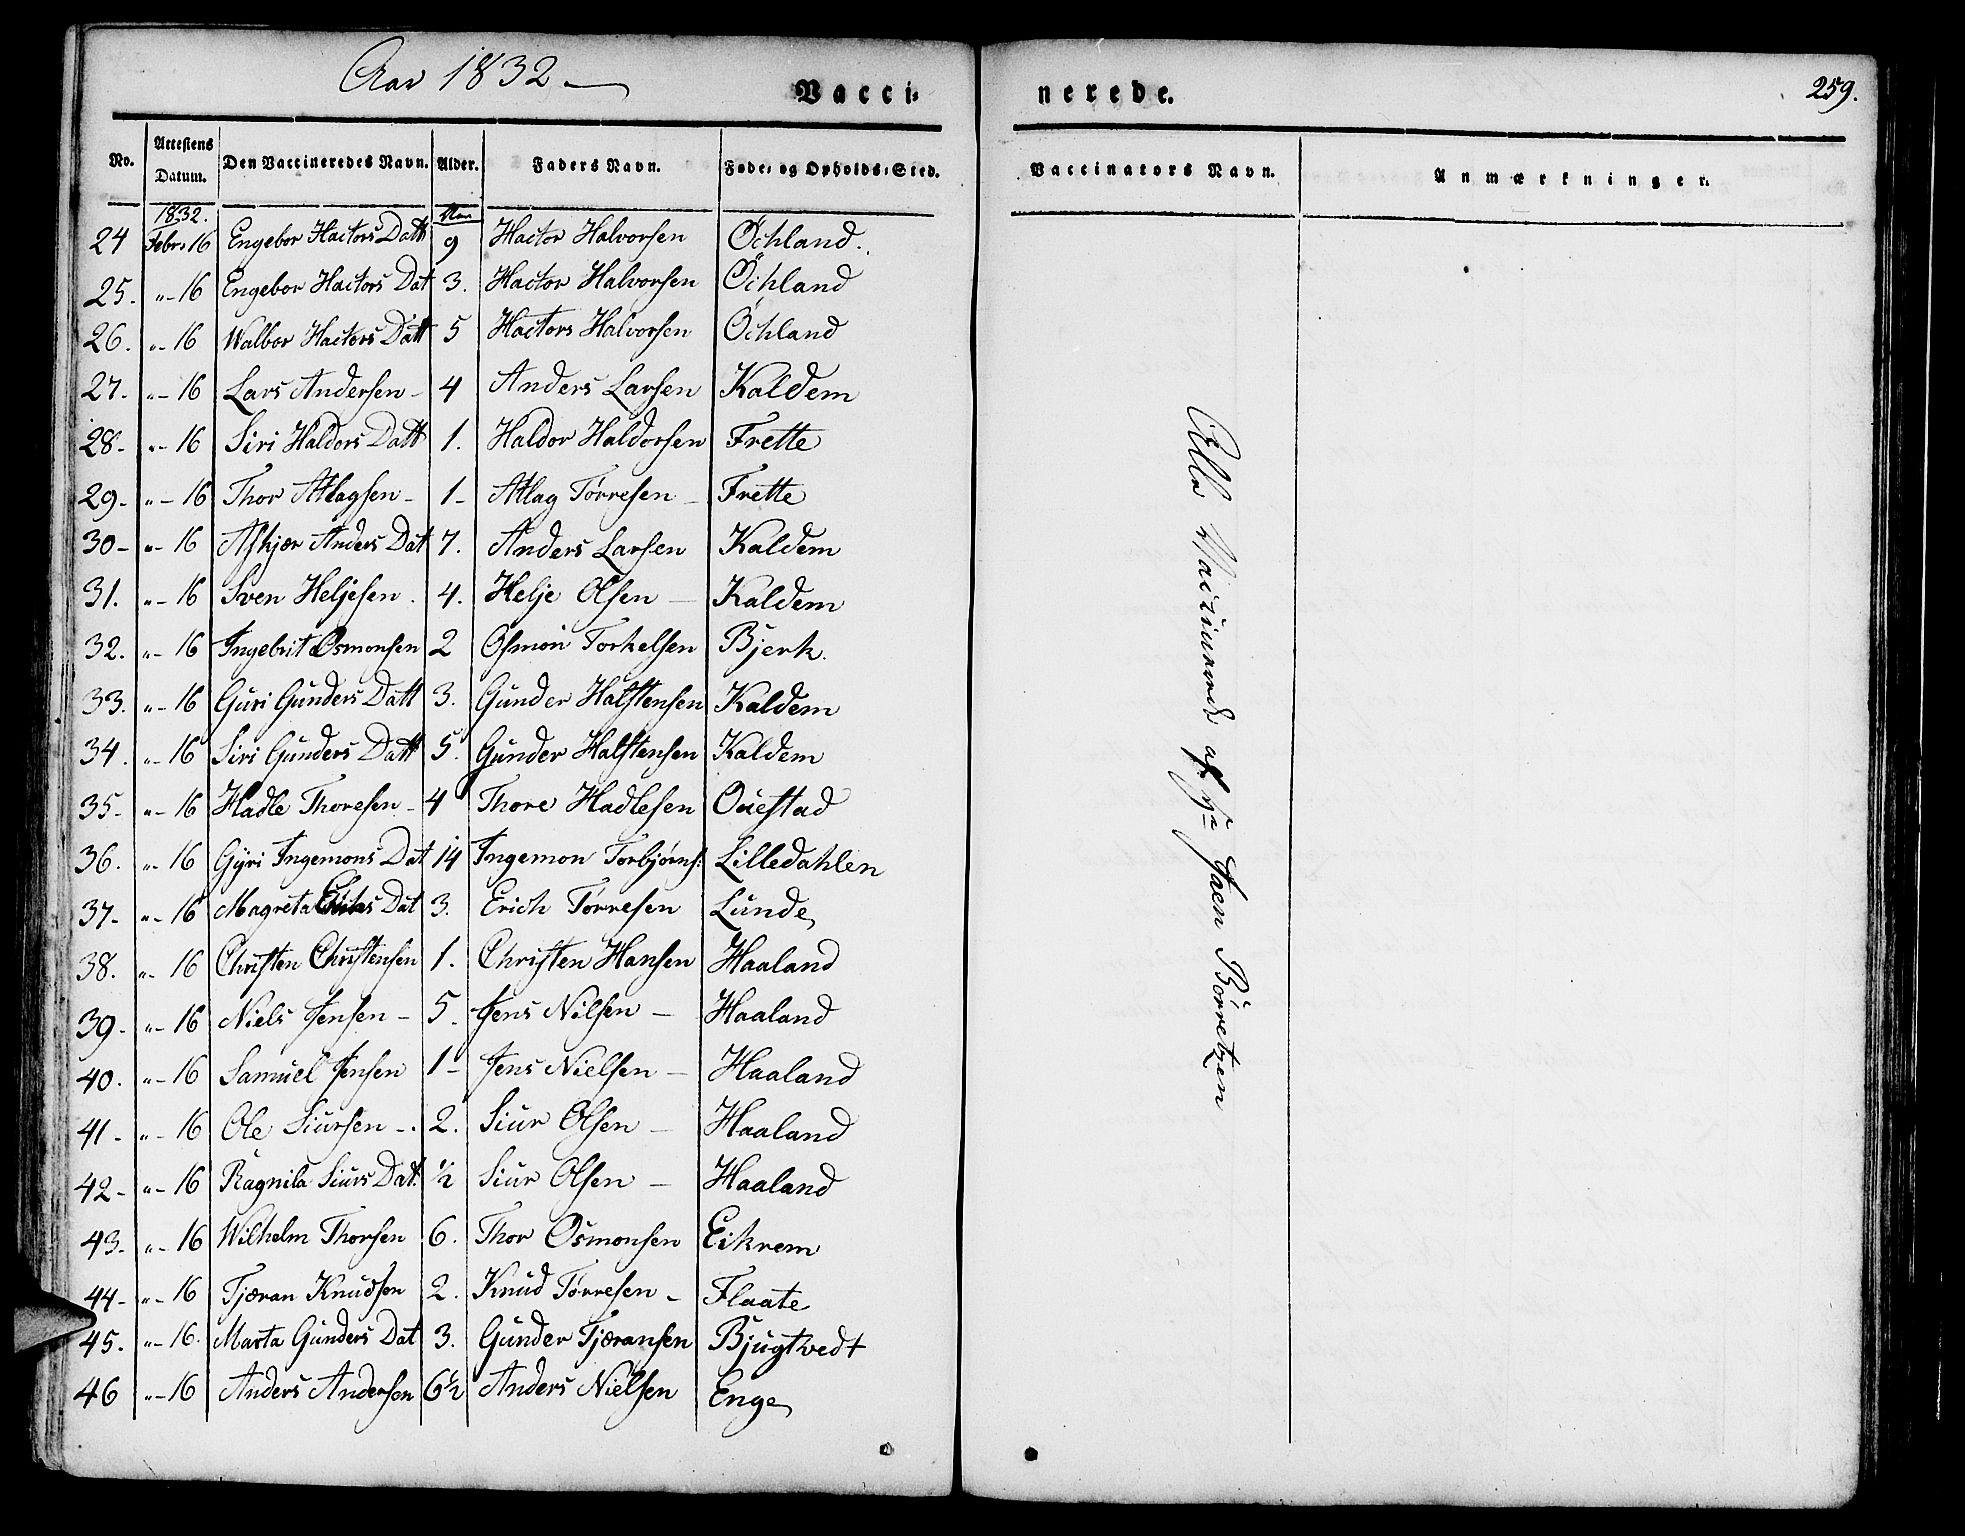 Aar 1832 —
Vacci-
nerede.
259.
No. Attestens Datum. Den Vaccineredes Navn. Alder. Faders Navn. Føde- og Opholds-Sted. Vaccinators Navn. Anmærkninger.
1832. Aar
24 Febr: 16 Engebor Hactors Datt 9 Hactor Halvorsen Öchland.
25. "-16 Engebor Hactors Dat 3. Hactor Halvorsen Öchland
26. "-16 Walbor Hactors Datt 5 Hactors Halvorsen Öchland
27. "-16 Lars Andersen - 4 Anders Larsen Kaldem
28- "-16 Siri Haldors Datt 1. Haldor Haldorsen Frette
29- "-16 Thor Atlagsen - 1- Atlag Tørresen - Frette
30- "-16 Askjær Anders Dat 7. Anders Larsen Kaldem
31. "-16 Sven Heljesen . 4. Helje Olsen — Kaldem
32. "-16 Ingebrit Osmonsen 2 Osmon Torkelsen Bjerk.
33. "-16 Guri Gunders Datt 3. Gunder Halstensen Kaldem
34. "-16 Siri Gunders Datt 5. Gunder Halstensen Kaldem
35- "-16 Hadle Thoresen - 4 Thore Hadlesen Ouestad
36. "-16 Gyri Ingemons Dat 14 Ingemon Torbjørns: Lilledahlen
37- "-16 Magreta Dat 3. Erich Tørresen Lunde
38. "-16 Christen Christensen 1. Christen Hansen Haaland
39- "-16 Niels Jensen - 5. Jens Nilsen — Haaland
40. "-16 Samuel Jensen 1- Jens Nielsen — Haaland
41- "-16 Ole Siursen -. 2. Siur Olsen — Haaland
42- "-16 Ragnila Siurs Dat. ½ Siur Olsen — Haaland
43- "-16 Wilhelm Thorsen 6. Thor Osmonsen Eikrem
44- "-16 Tjæran Knudsen 2. Knud Tørresen - Flaate
45. "-16. Marta Gunders Dat 3. Gunder Tjæransen Bjugtvedt
46 "-16 Anders Andersen 6½ Anders Nielsen Enge
Alle Vaccinered af Børretzen